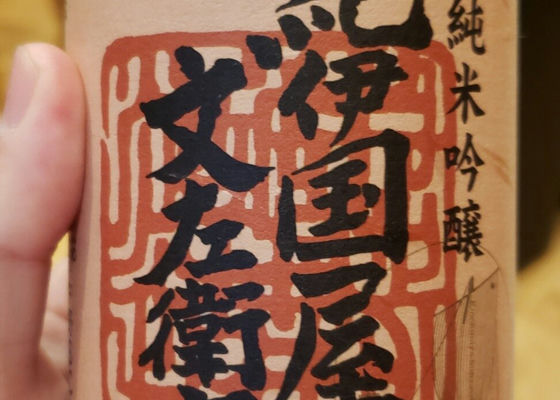 純米吟醸
紀伊国屋
文左衛